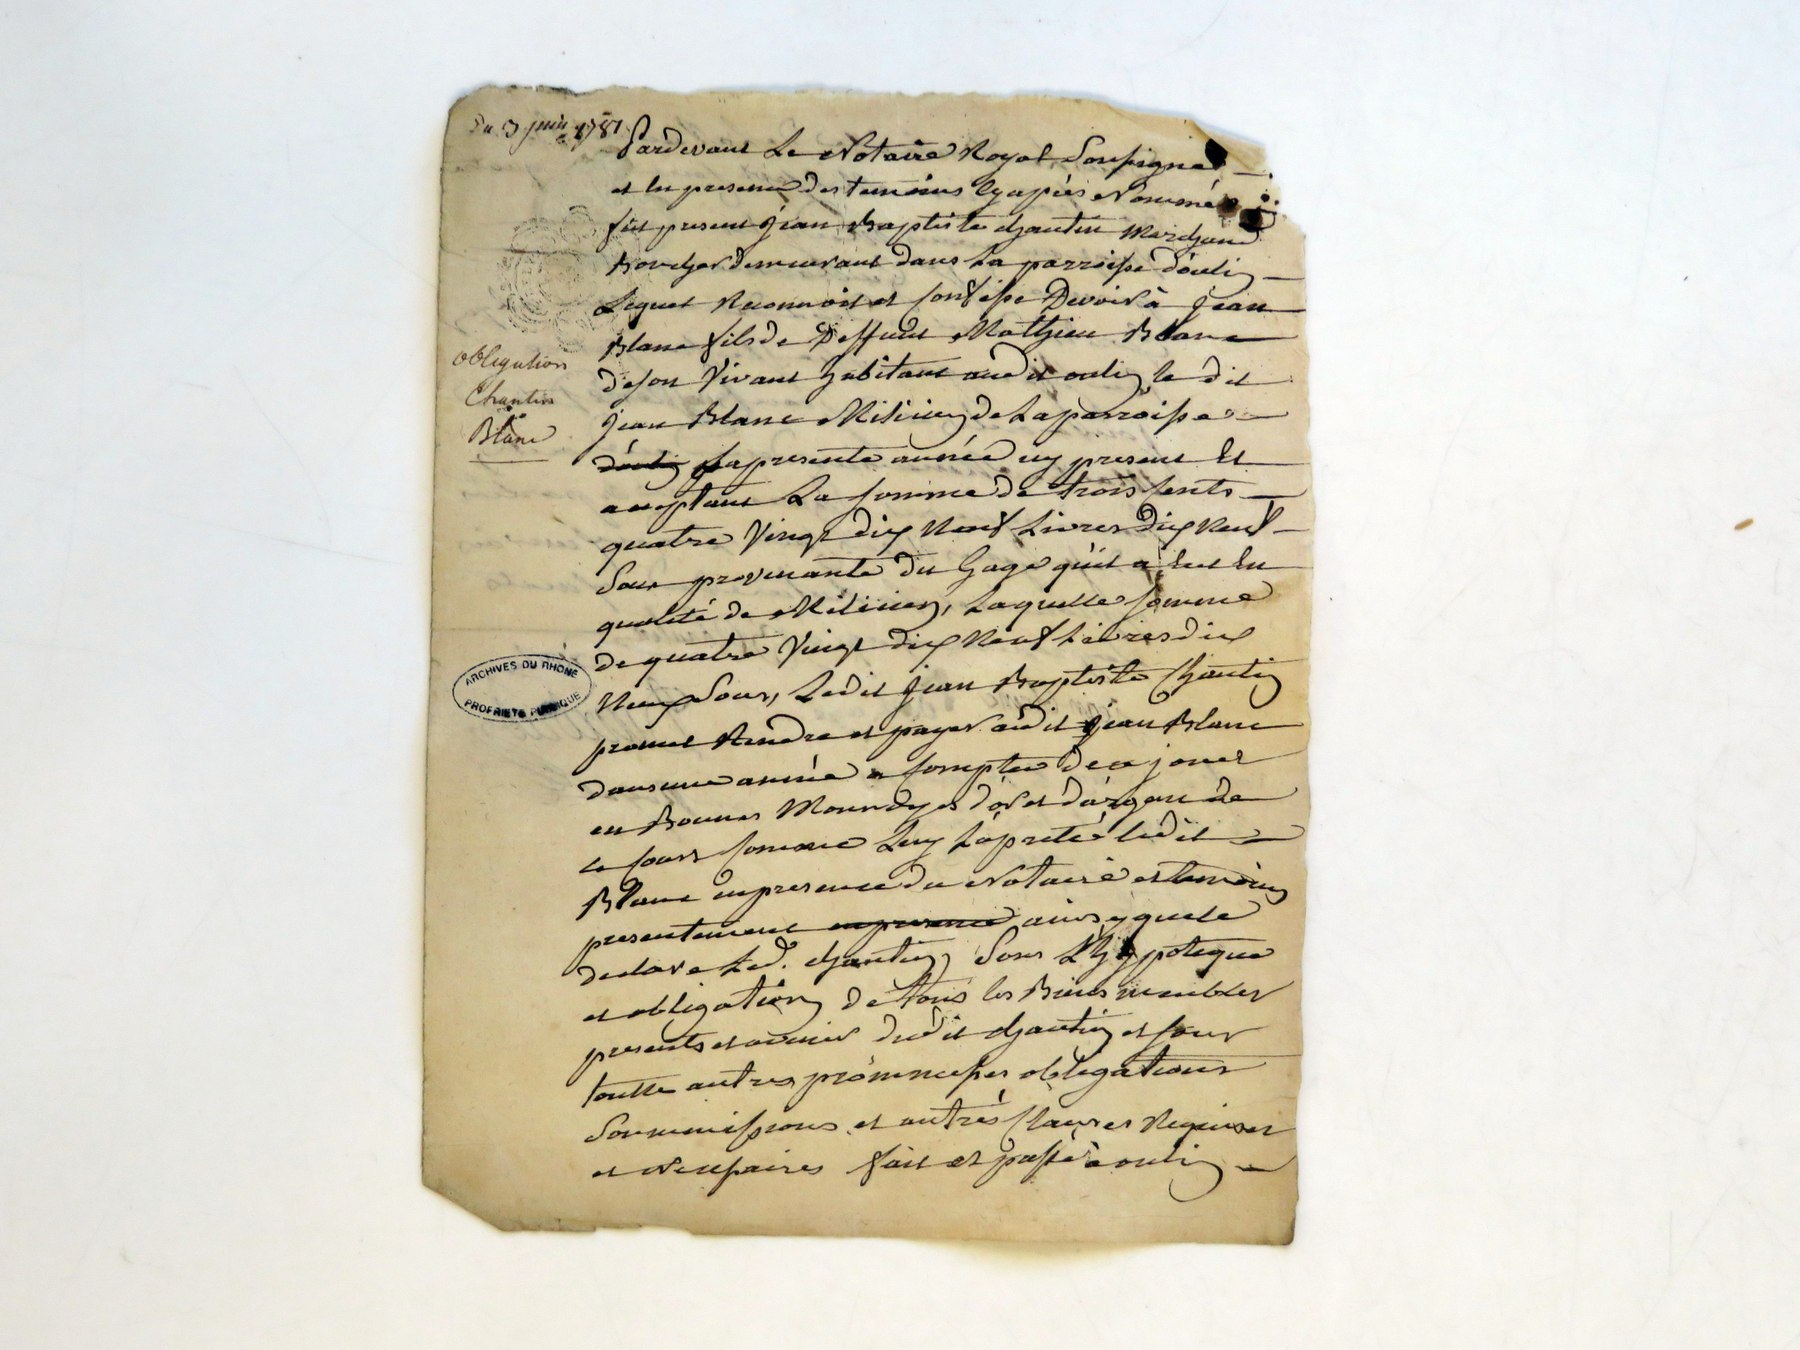 Du 3 juin 1781
Pardevant Le Notaire Royal Soussigné
et En presence des temoins Cy apres Nommés
fut present Jean Baptiste Chantin Marchand
Boucher demeurant dans La parroisse d'oulin
Lequel Reconnoit et Confesse Devoir à Jean
Blanc fils de Deffunt Mathieu Blanc
de son Vivant habitant audit oulin, le dit
Jean Blanc Milicien de La parroisse
d'oulin la presente année icy present Et
acceptant La somme de trois Cents
quatre Vingt dix Neuf Livres dix Neuf
Sous provenante du Gage qu'il a Eut En
qualité de Milicien, Laquelle somme
de quatre Vingt dix Neuf Livres dix
Neuf Sous, Ledit Jean Baptiste Chantin
promet Rendre et payer audit Jean Blanc
dans une année a Compter de ce jour
en Bonnes Monnoyes d'or et d'argent de
Cours somme Luy La prete ledit
Blanc en presence du Notaire et temoins
presentement en presence ainsy que le
declare Led. Chantin, Sous L'hypoteque
et obligation de tous les Biens meubles
presents et avenir dudit Chantin et sous
toutte autres prommesses obligations
Soummissions et autres Clauses Requises
et Necessaires fait et passé à oulin
obligation
Chantin
à
Blanc
ARCHIVES DU RHÔNE
PROPRIETE PUBLIQUE